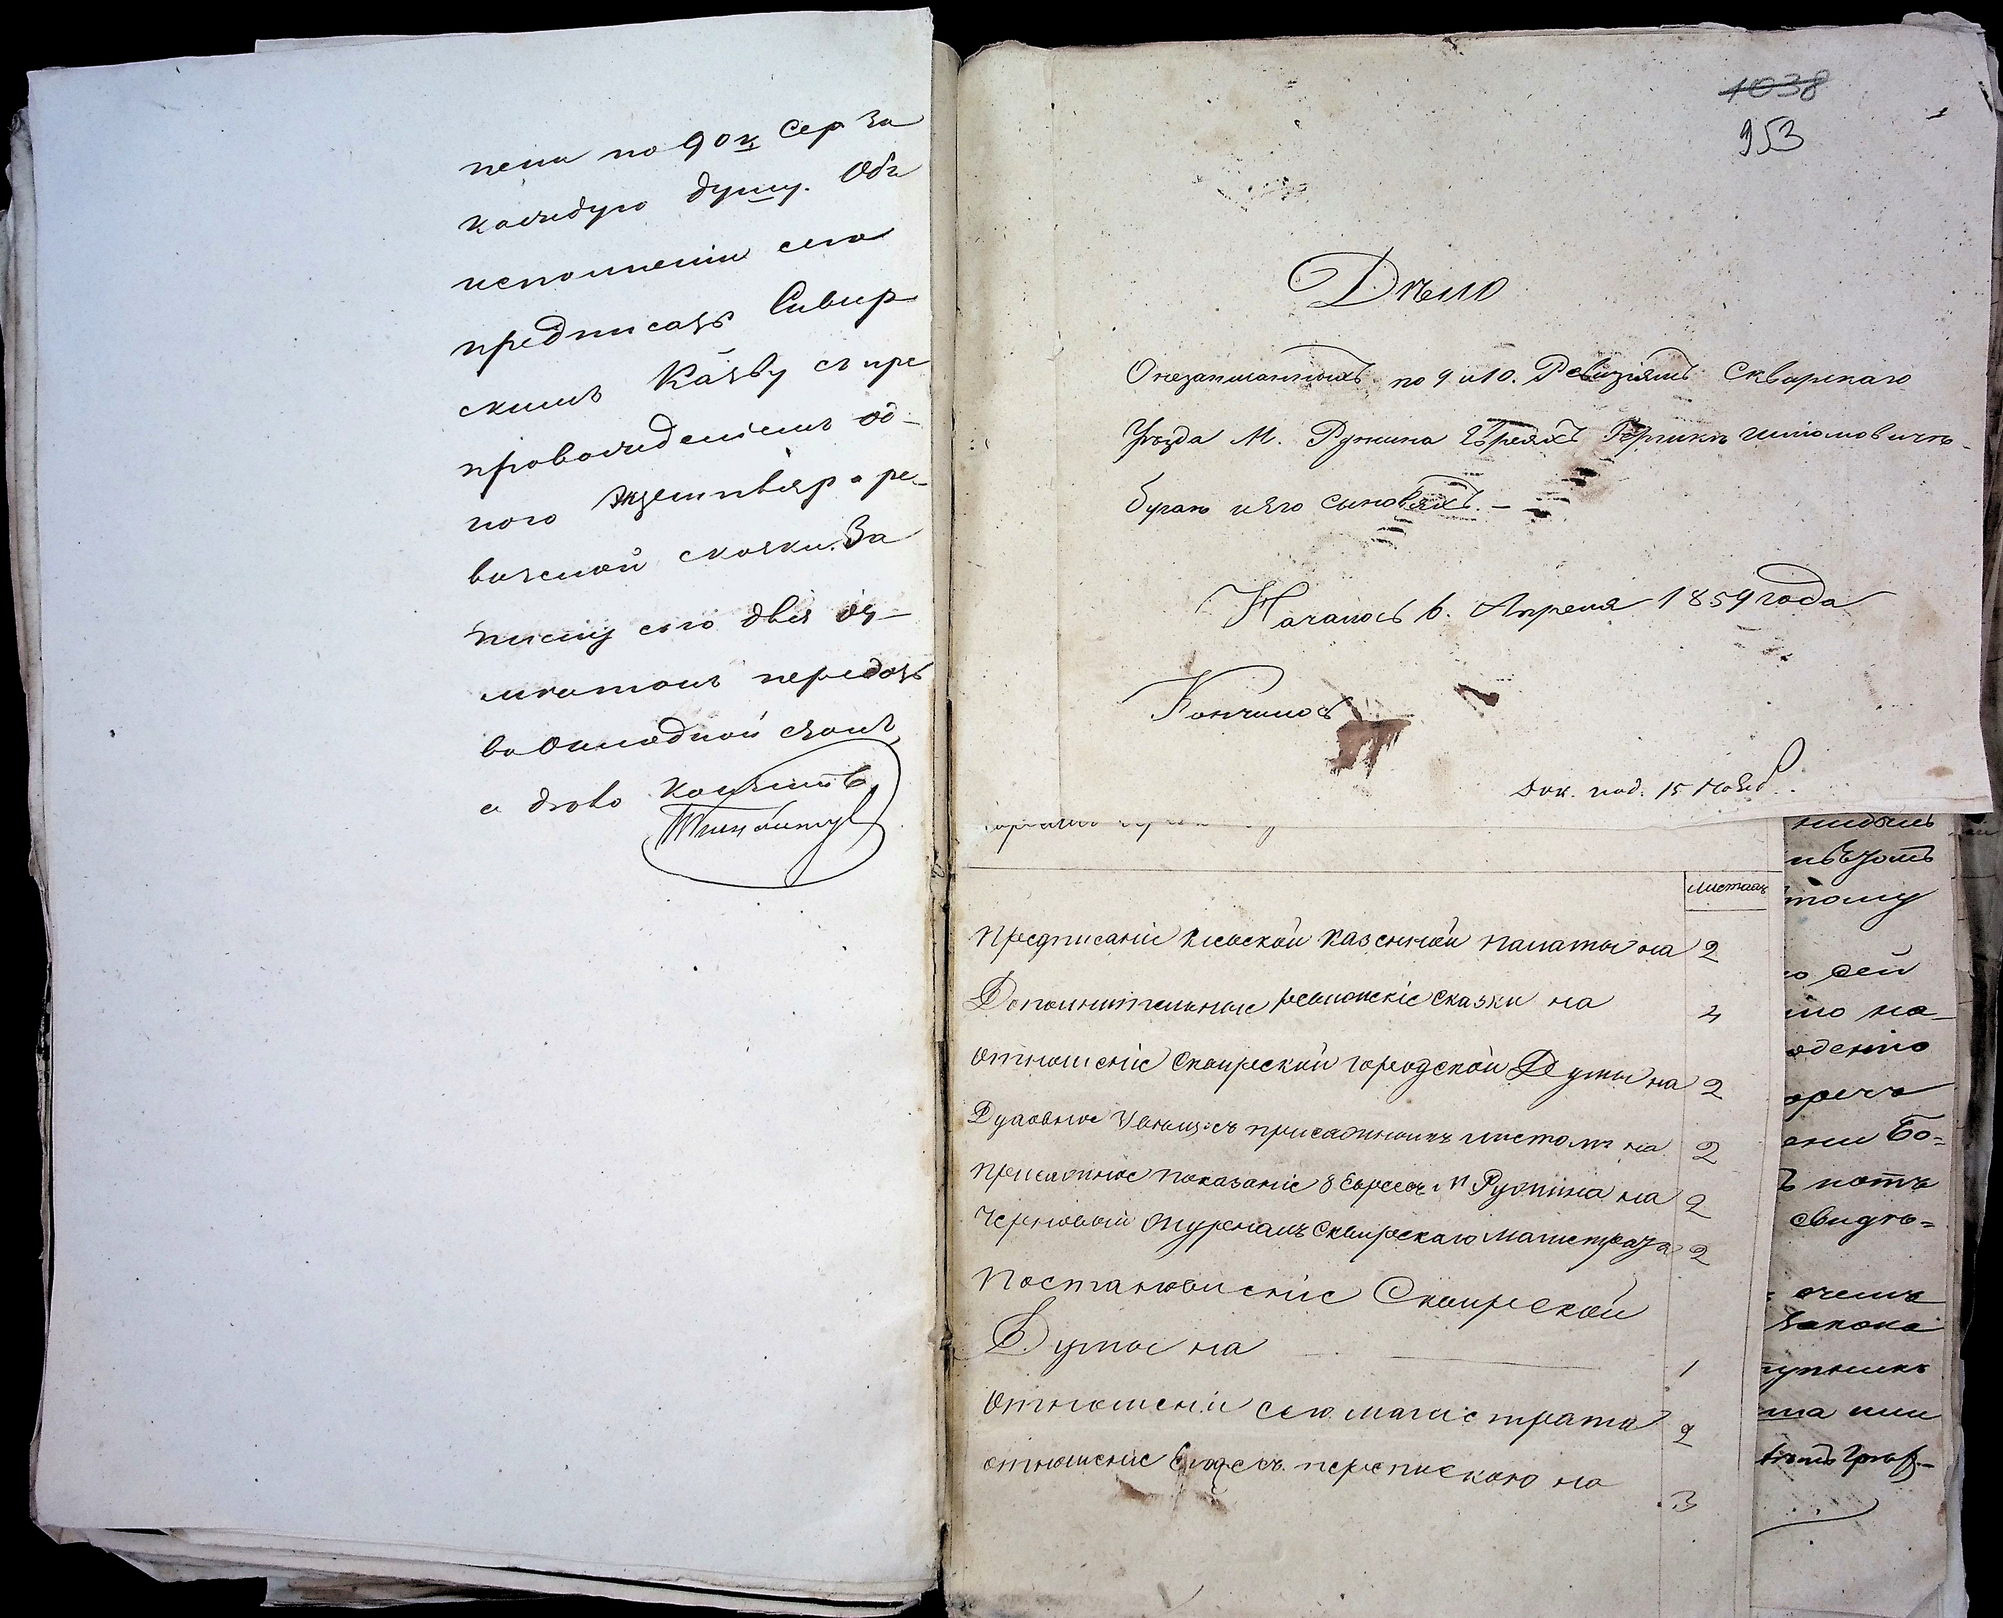 пени по 90 к. Сер. за
каждую душу. Объ
исполненіи сего
предписать Сквир
скому Казву съ пре
провожденіемъ од-
ного экземпляра ре-
визской сказки. За
писку сію для
передать
въ Окладной столъ,
а дѣло кончить
1038
953
1
Дѣло
О незаписанныхъ по 9 и 10. Ревизіямъ Сквирскаго
Уѣзда М. Ружина Евреяхъ Гершкѣ Штомовичѣ
Бугаю и его сыновяхъ. —
Началось 6. Апреля 1859 года
Кончилось
Док. под. 15 Нояб.
листахъ
Предписаніе Кіевской Казенной палаты на 2
Дополнительные ревизскіе сказки на 4
Отношеніе Сквирской городской Думы на 2
Духовное съ присяжнымъ листомъ на 2
Присяжное показаніе 8 Евреевъ М. Ружина на 2
Черновый Журналъ Сквирскаго магистрата 2
Постановленіе Сквирской
Думы на 1
Отношеніи сего магистрата 2
отношеніе съ перепискою на 3
тому
о сей
но на-
речь
ени Бо-
ъ потъ
свидѣ-
очемъ
Закона
ша или